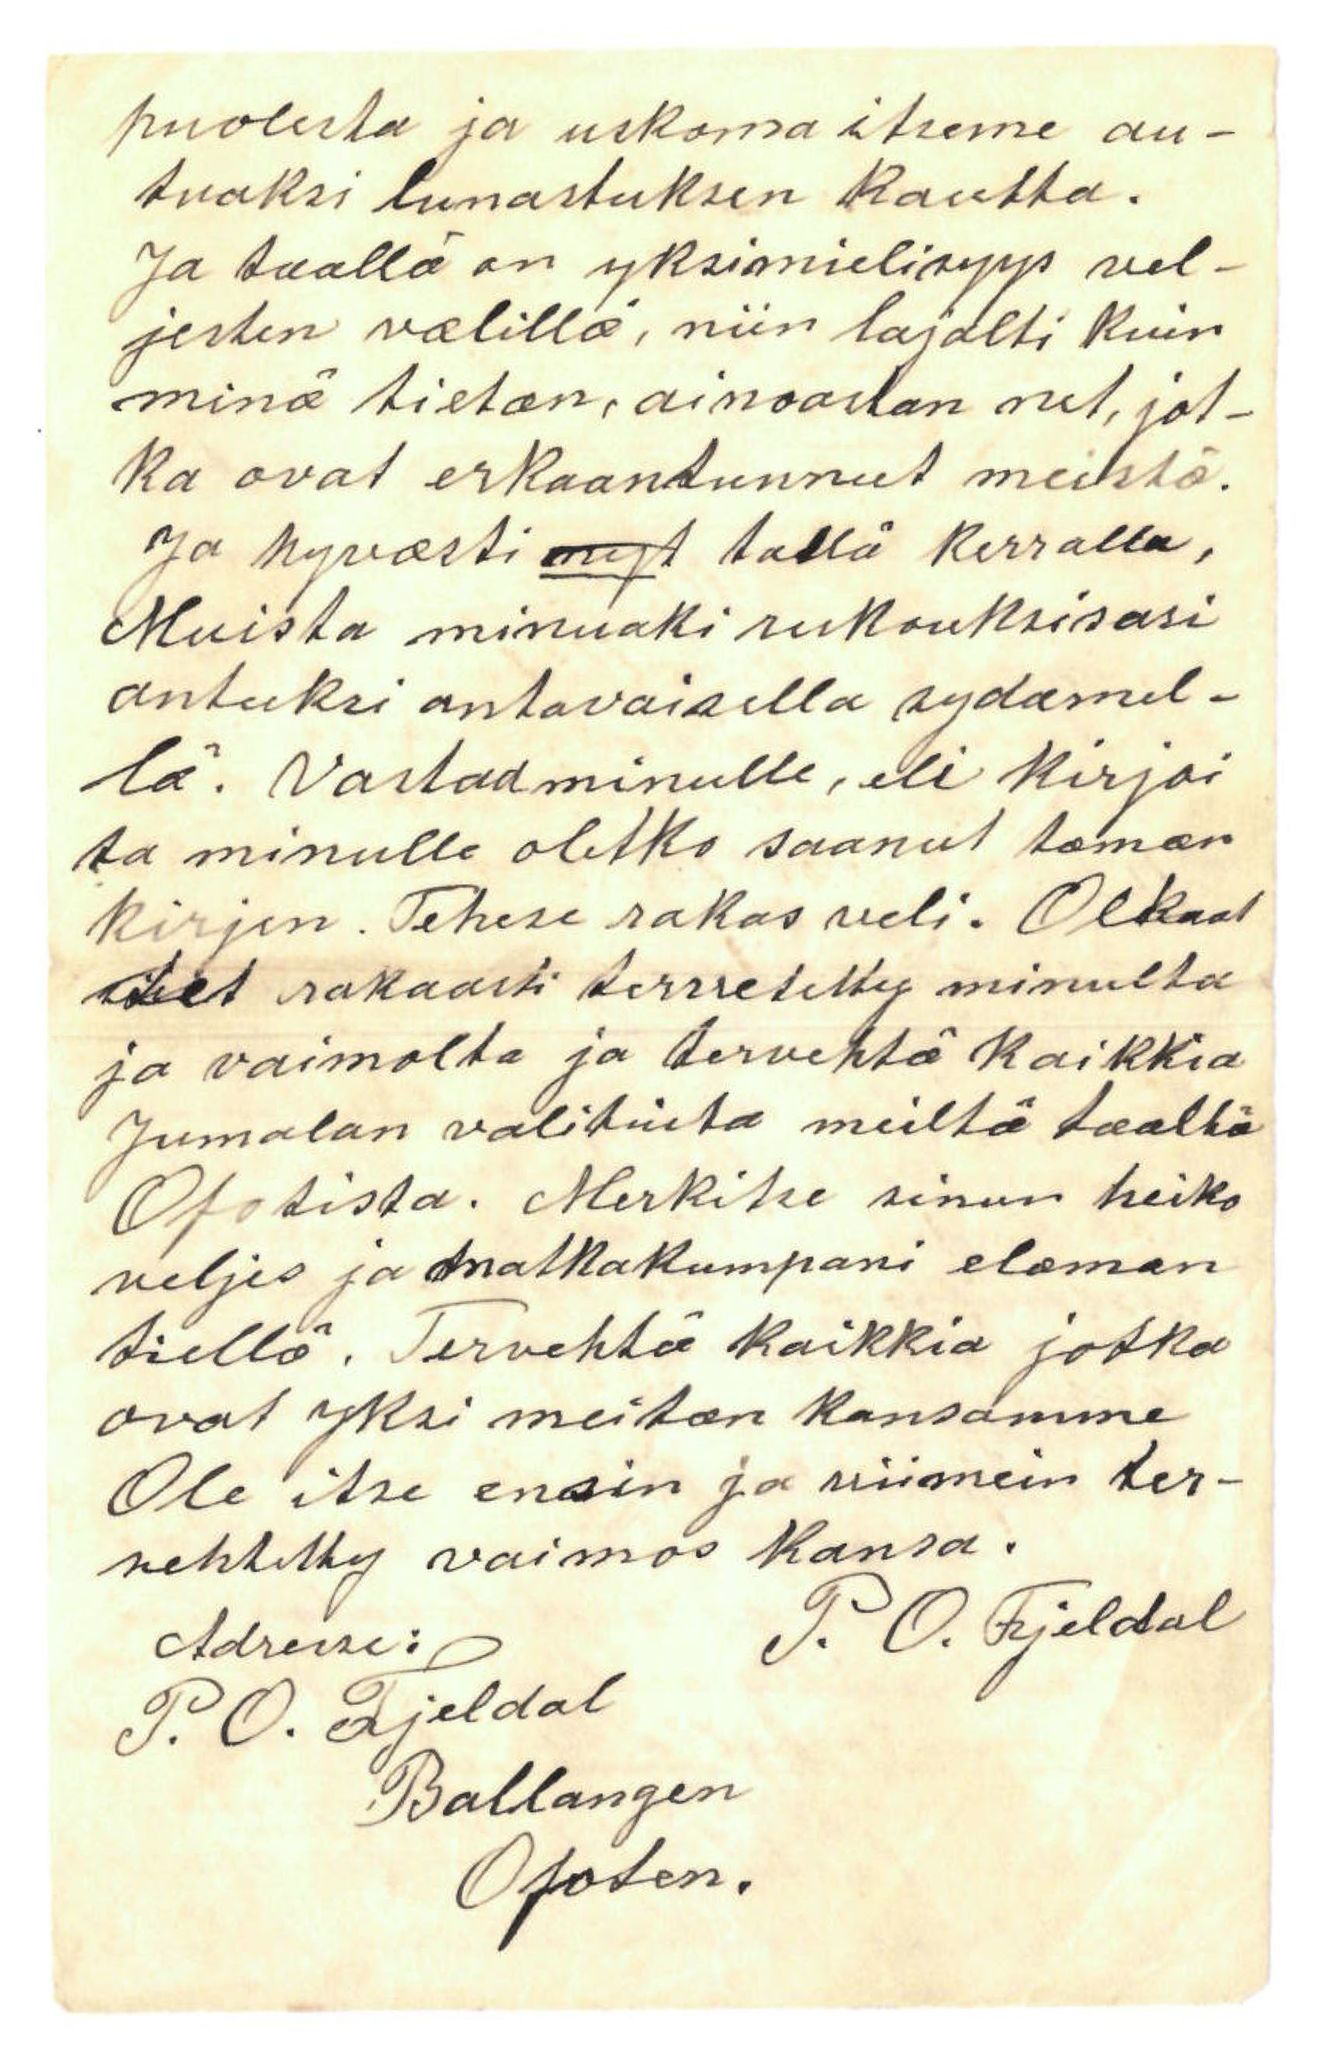 puolesta ja uskoma itseme au-
tuaksi lunastuksen kautta.
Ja taallä on yksimielisyys vel-
jesten vælillä, niin lajalti kuin
minä tietæn, ainoastan net, jot-
ka ovat erkaantunnut meistä.
Ja hyvæsti nyt tallä kerralla,
Muista minuaki rukouksisasi
anteeksi antavaisella sydæmel-
lä. Vastaa minulle, eli kirjoi
ta minulle oletko saanut tæmæn
kirjen. Tehese rakas veli. Olkaat
rakaasti minulta
ja vaimolta ja tervehtä kaikkia
Jumalan valituita meiltä tæältä
Ofotista. Merkitse sinun heiko
veljes ja matkakumpani elæman
tiellä. Tervehtä kaikkia jotka
ovat yksi meitæn kansamme
Ole itse ensin ja viimein ter-
vehtetty vaimos kansa.
P. O. Fjeldal
Adresse:
P. O. Fjeldal
Ballangen
Ofoten.